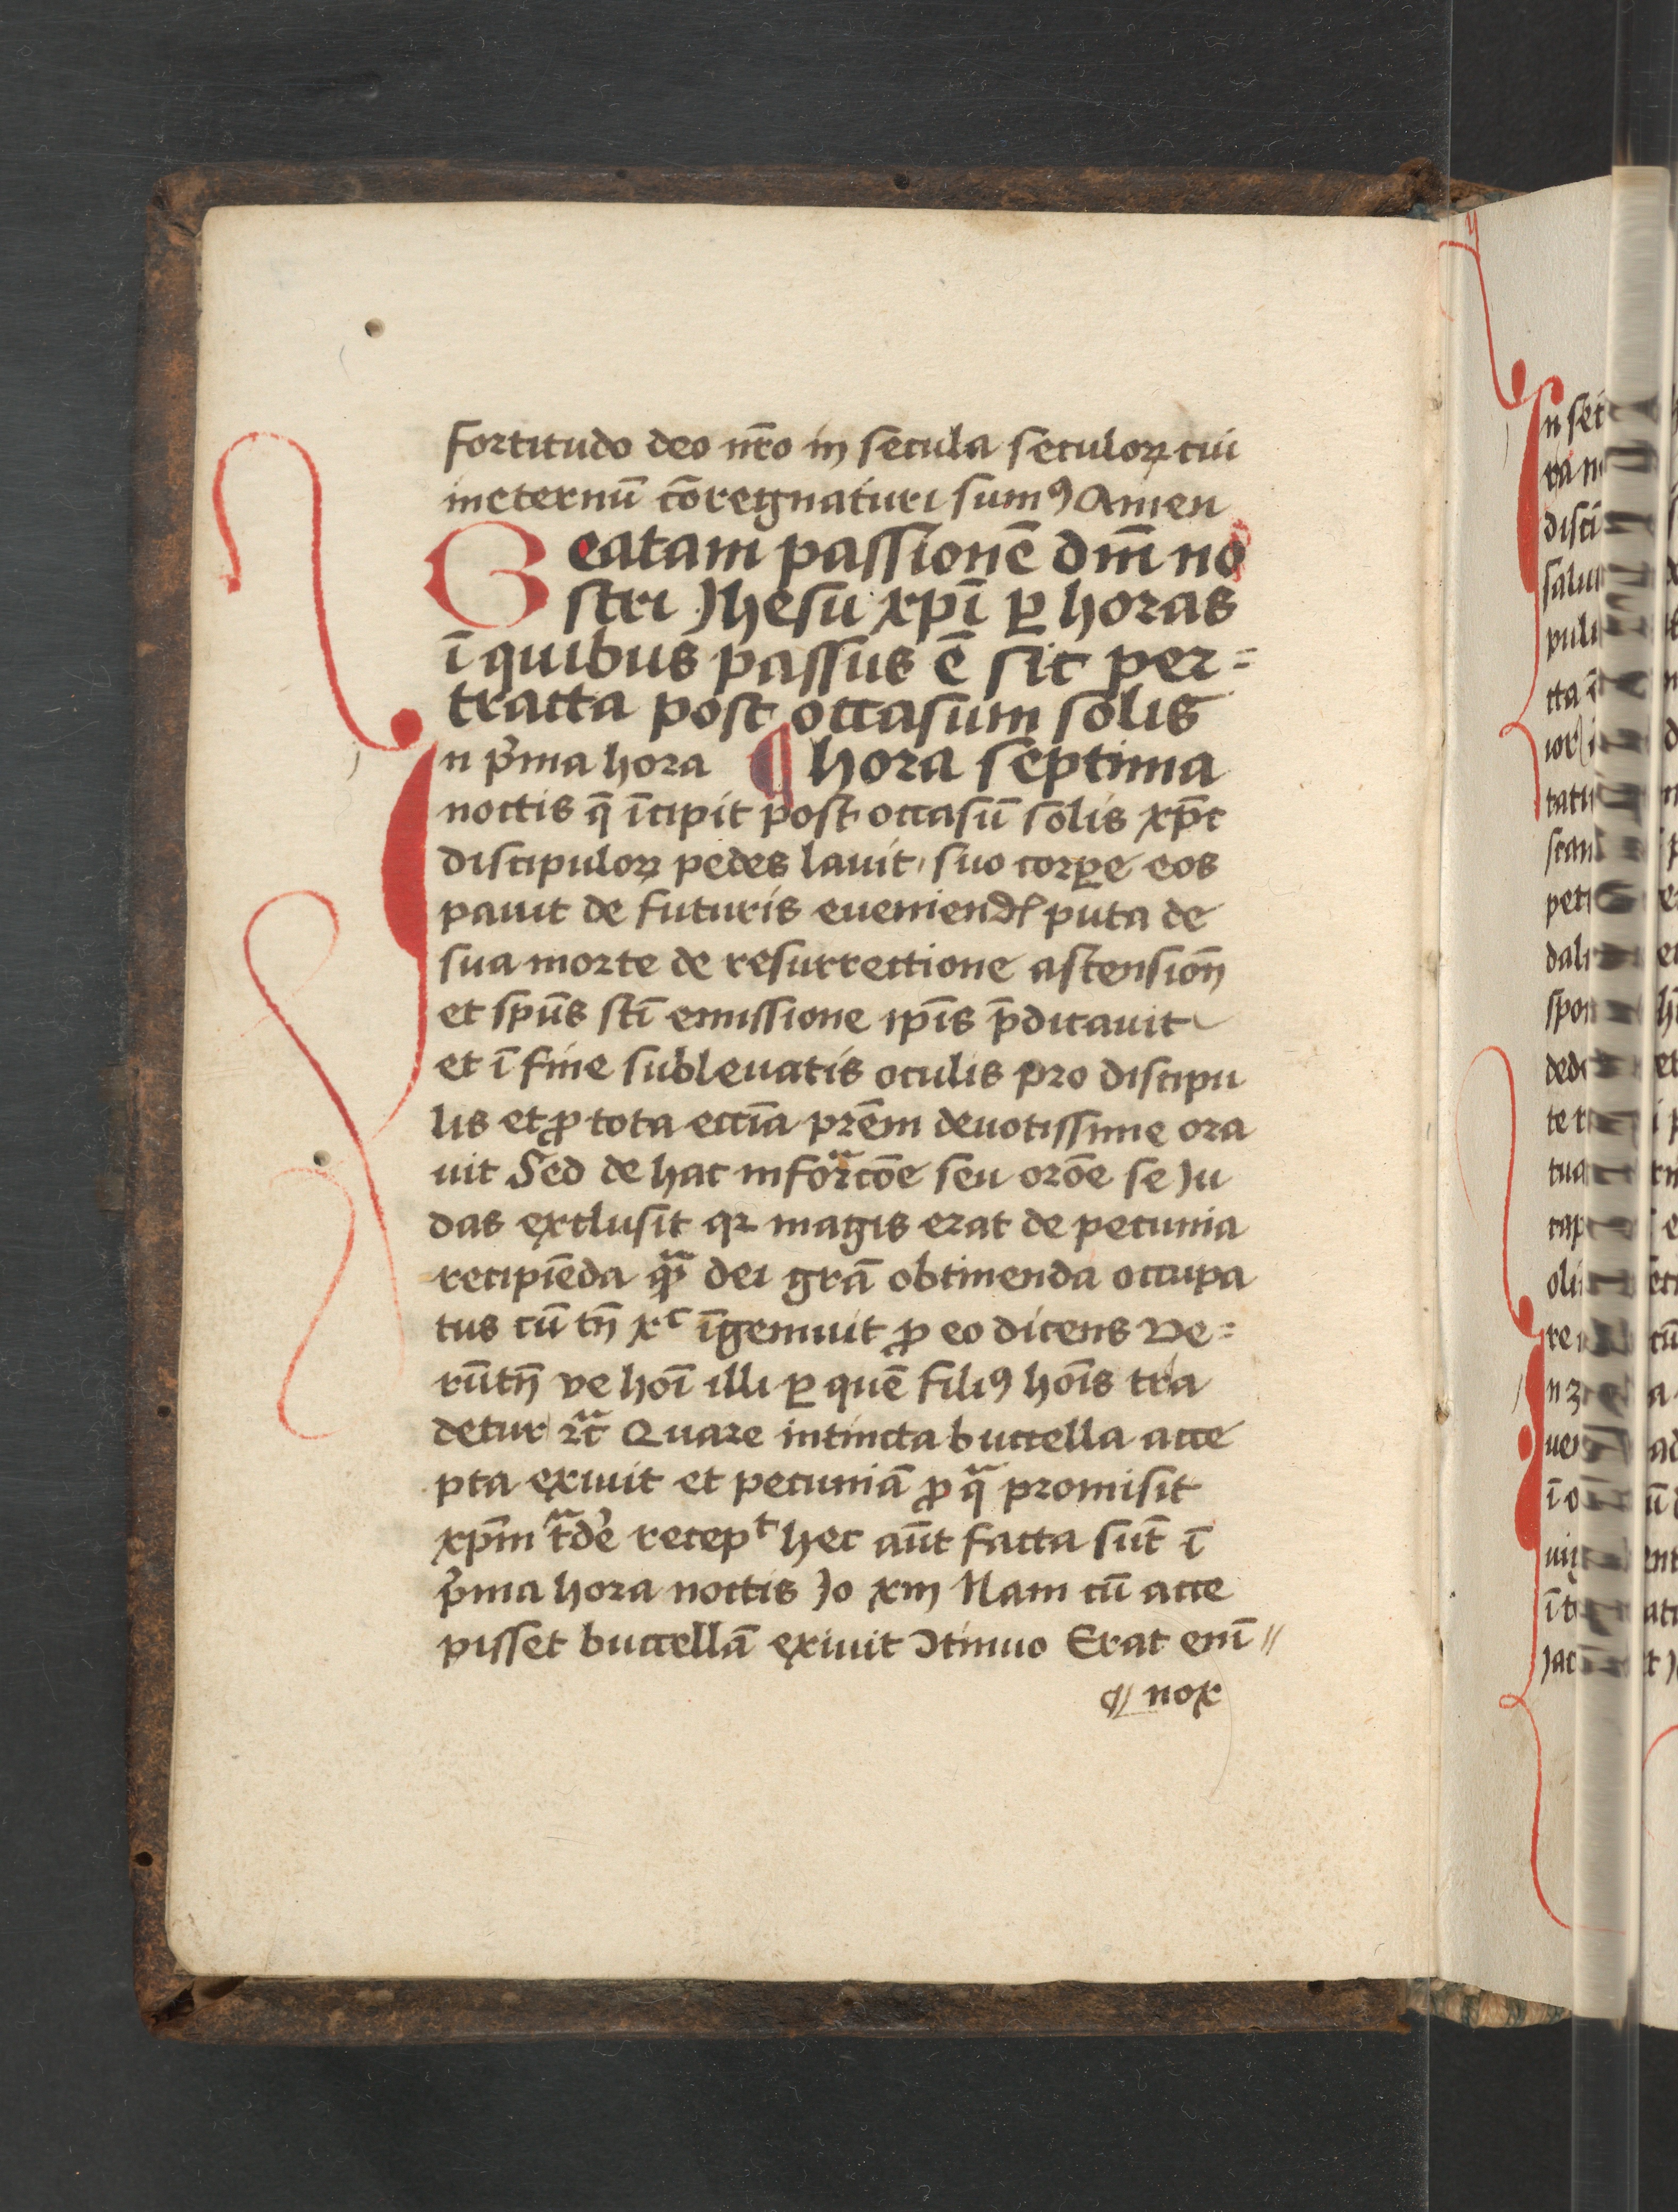 fortitudo deo nr̄o in secula seculoꝝ cui
ineternū cōregnaturi sumꝰ Amen
Beatam passionē dm̄ no
stri Jhesu xp̄i ꝑ horas
ī quibus passus ē sic per=
tracta post occasum solis
In p̾ma hora ¶ hora septima
noctis q̄ īcipit post occasū solis xp̄c
discipuloꝝ pedes lauit, suo corꝑe eos
pauit de futuris eueniendꝭ puta de
sua morte de resurrectione ascension̄
et sp̄us sc̄i emissione ip̄is p̄dicauit
et ī fine subleuatis oculis pro discipu
lis et ꝓ tota eccīa prēm deuotissime ora
uit Sed de hac inforᷓcōe seu orōe se Ju
das exclusit qꝛ magis erat de pecunia
recipiēda ꝙᷓ dei grā obtinenda occupa
tus cū tn̄ xᶜ īgemuit ꝓ eo dicens Ve=
rūtn̄ ve hoī illi ꝑ quē filiꝰ hoīs tra
detur ⁊cᷓ Quare intincta buccella acce
pta exiuit et pecuniā ꝓ qᷓ promisit
xp̄m tᷓde̾ recepᵗ hec aūt facta sūt ī
p̾ma hora noctis Jo xiij Nam cū acce
pisset buccellā exiuit ↄtinuo Erat enī //
¶ nox